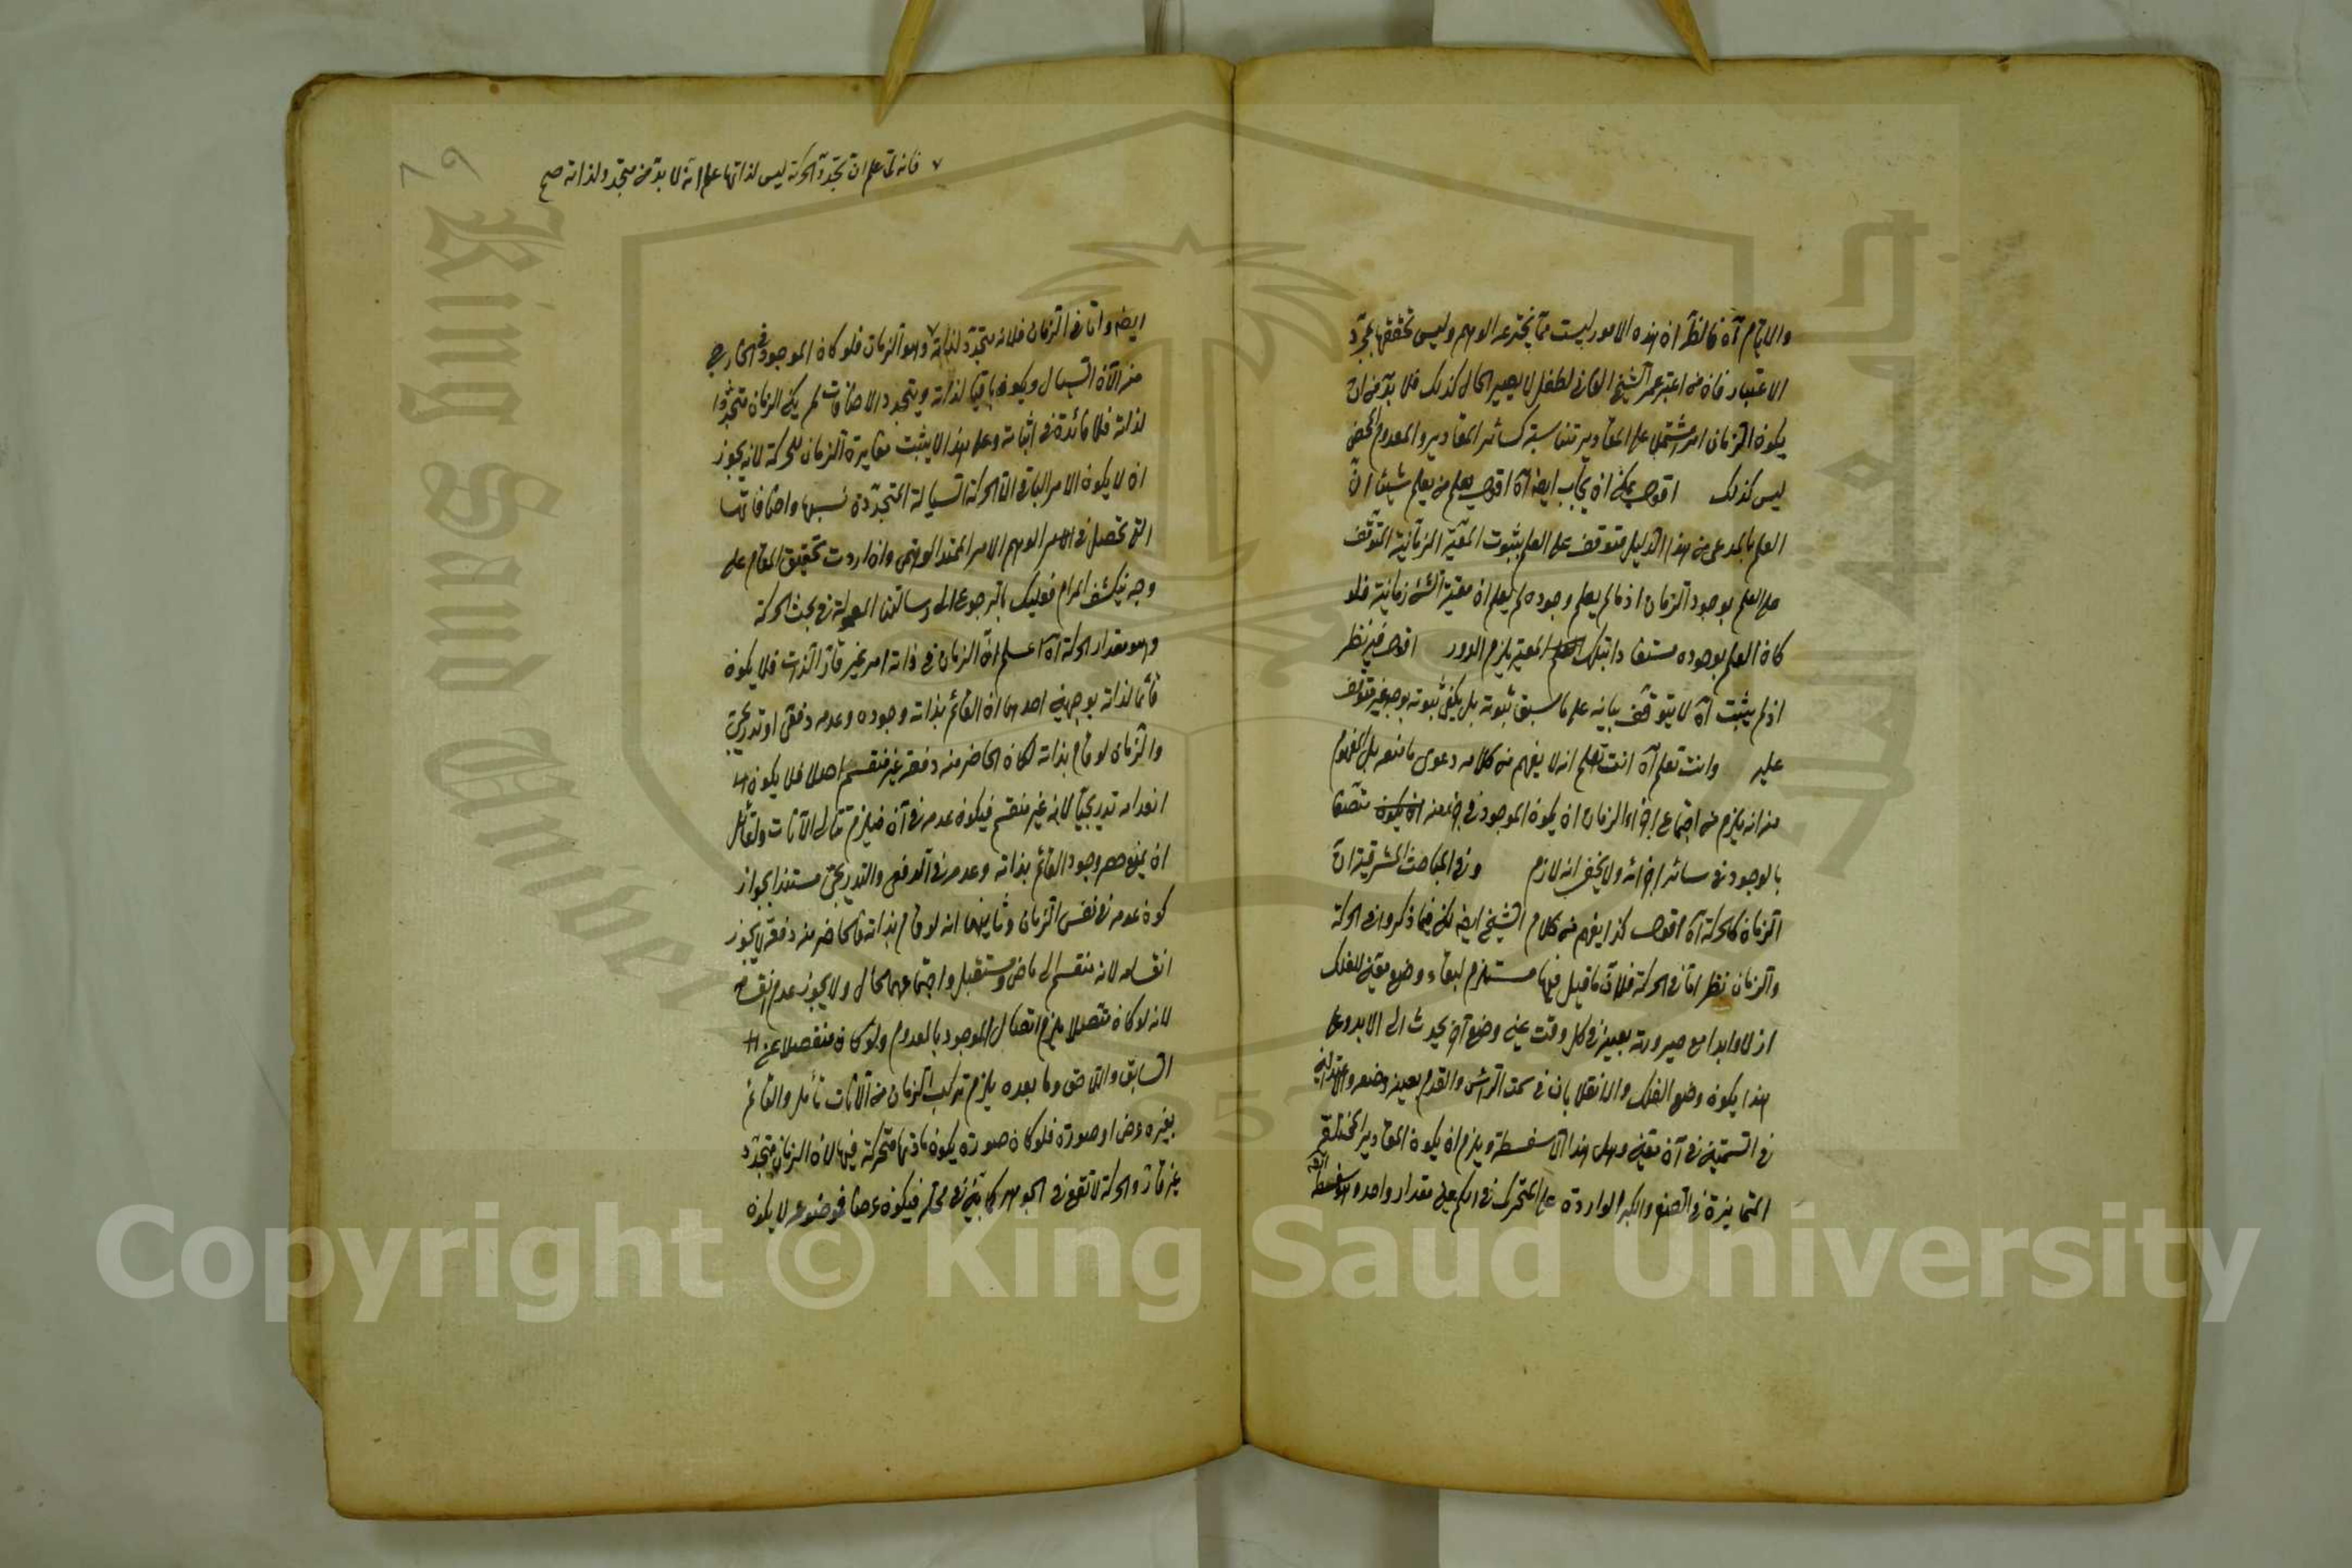 والايام آه فالنظر ان هذه الامور ليست مما يخترعه الوهم وليس تحققها بمجرد
الاعتبار فان من اعتبر عمر الشيخ الفاني لطفل لا يصير الحال كذلك فلا بد من ان
يكون الزمان امر يشتمل على المقادير تناسبه كسائر المقادير والمعدوم المحض
ليس كذلك اقول يمكن ان يجاب ايضا آه اقول يعلم من يعلم شيئا ان
العلم بالمدعى من هذا الدليل متوقف على العلم بثبوت المعية الزمانية المتوقف
على العلم بوجود الزمان اذ مالم يعلم وجوده لم يعلم ان معية الشئ زمانية فلو
كان العلم بوجوده مستفادا بتلك المعية يلزم الدور اقول فيه نظر
اذ لم يثبت آه لا يتوقف بيانه على ما سبق ثبوته بل يكفي ثبوته بوجه غير متوقف
عليه وانت تعلم آه انت تعلم انه لا يفهم من كلامه دعوى ما منعه بل المفهوم
منه انه يلزم من اجتماع اجزاء الزمان ان يكون الموجود في بعضه ان يكون متصفا
بالوجود في سائر اجزائه ولا يخفى انه لازم وفي المباحث المشرقية ان
الزمان كالحركة آه اقول كذا يفهم من كلام الشيخ ايضا لكن فيما ذكروا في الحركة
والزمان نظر اما في الحركة فلان ما قيل فيها مستلزم لبقاء وضع معين للفلك
ازلا وابدا مع صيرورته بعينه في كل وقت عين وضع آخر يحدث الى الابد وعلى
هذا يكون وضع الفلك والانقلابان في سمت الرأس والقدم بعينه وضعه والاعتدالين
في السمتين في آن معين وهل هذا الا سفسطة ويلزم ان يكون المقادير المختلفة
المتمايزة في الصغر والكبر الواردة على المتحرك في الكم عين مقدار واحد وهو سفسطة
٧ فانه لما علم ان تجدد الحركة ليس لذاتها علم انه لا بد من متجدد لذاته صح
٧٩
ايضا واما في الزمان فلانه متجدد لذاته ٧ وهو الزمان فلو كان الموجود في الخارج
من الآن السيال ويكون باقيا لذاته ويتجدد الاضافات لم يكن الزمان متجددا
لذاته فلا فائدة في اثباته وعلى هذا لا يثبت مغايرة الزمان للحركة لانه يجوز
ان لا يكون الامر الباقي الا الحركة السيالة المتجددة نسبها واضافاتها
التي تحصل في الوهم الامر الممتد الوهمي وان اردت تحقيق المقام على
وجه ينكشف المرام فعليك بالرجوع الى رسالتنا المعمولة في بحث الحركة
وهو مقدار الحركة آه اعلم ان الزمان في ذاته امر غير قار الذات فلا يكون
قائما لذاته بوجهين احدهما ان القائم بذاته وجوده وعدمه دفعي او تدريجي
والزمان لو قام بذاته لكان الحاضر منه دفعة غير منقسم اصلا فلا يكون
انعدامه تدريجيا لانه غير منقسم فيكون عدمه في آن فيلزم تتالي الآنات ولقائل
ان يمنع حصر وجود القائم بذاته وعدمه في الدفعي والتدريجي مستندا بجواز
كون عدمه في نفس الزمان وثانيهما انه لو قام بذاته فالحاضر منه دفعة لا يجوز
انقسامه لانه منقسم الى ماض ومستقبل واجتماعهما محال ولا يجوز عدم انقسامه
لانه لو كان متصلا يلزم اتصال الموجود بالمعدوم ولو كان منفصلا عن
السابق واللاحق وما بعده يلزم تركب الزمان من الآنات تأمل والقائم
بغيره عرض او صورة فلو كان صورة يكون مادتها متحركة فيها لان الزمان متجدد
غير قار والحركة لا تقع في الجوهر كما بين في محله فيكون عرضا فموضوعه لا يكون
Copyright © King Saud University
King Saud University
1957